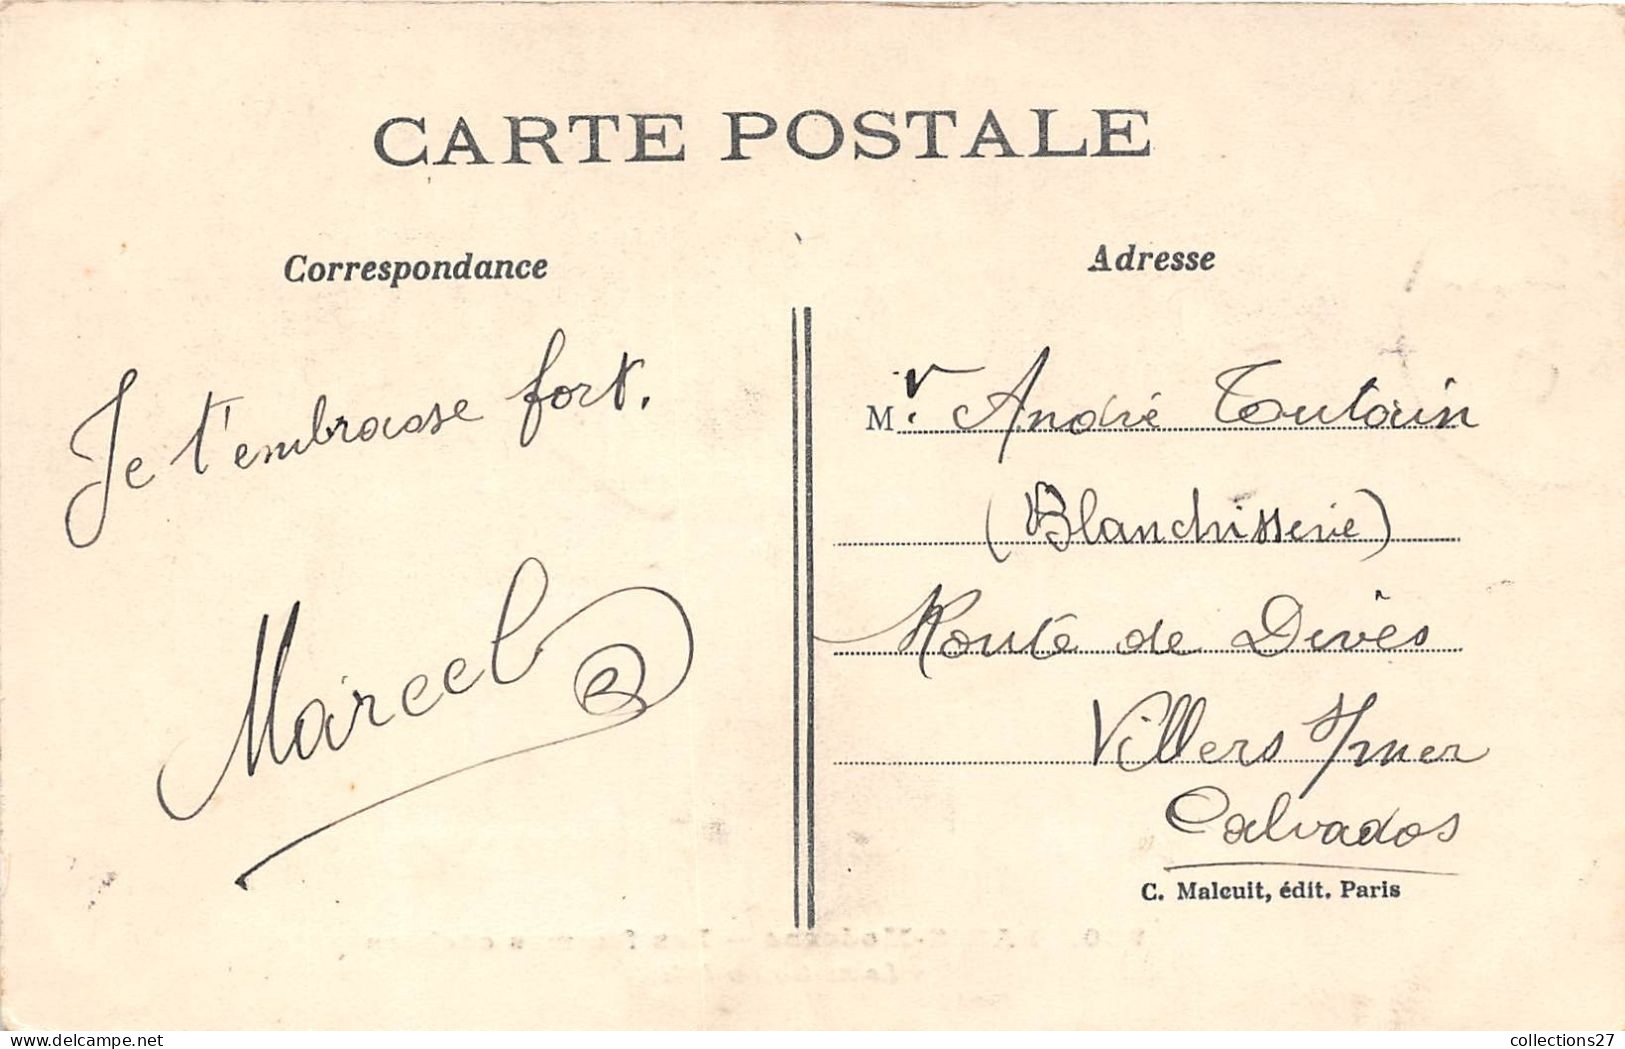 CARTE POSTALE
Correspondance
Je t'embrasse fort.
Marcel
Adresse
Mr. André Toutain
(Blanchisserie)
Route de Divès
Villers s/mer
Calvados
C. Malcuit, édit. Paris
collections27